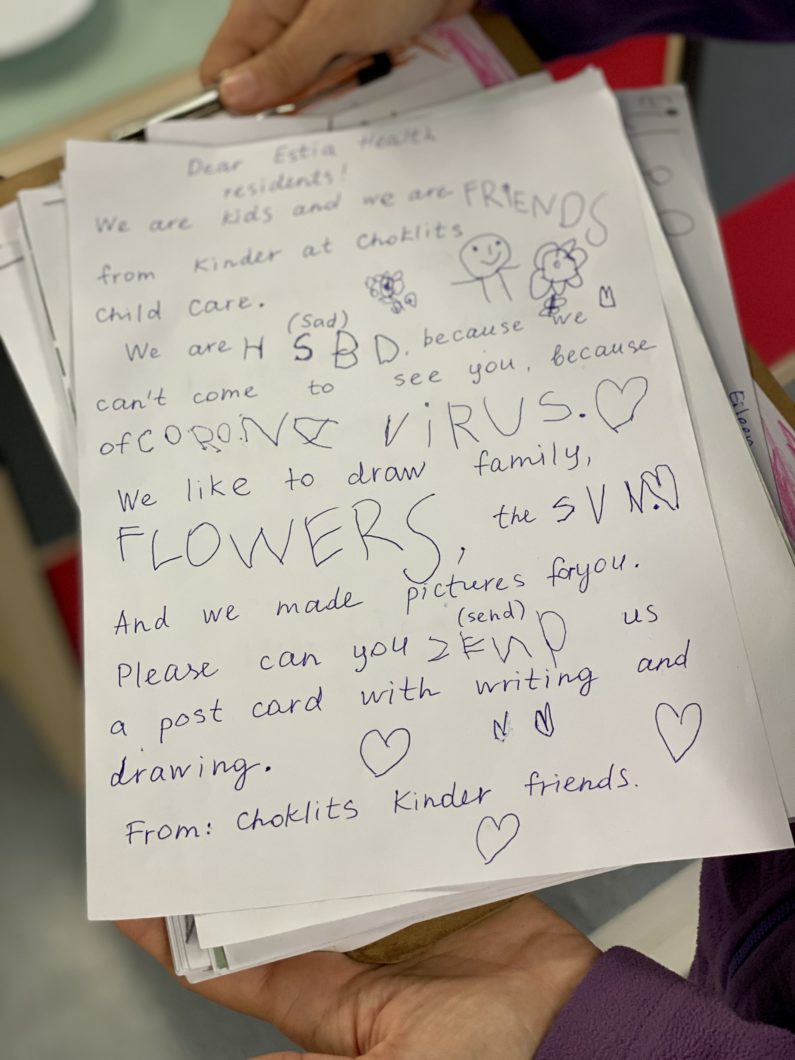 Dear Estia Health
residents!
We are kids and we are FRiENDS
from Kinder at Choklits
Child care.
(Sad)
We are H S B D. because we
can't come to see you, because
of CORONA ViRUS.
We like to draw family,
FLOWERS, the SVN.
And we made pictures foryou.
(send)
Please can you ZEND us
a post card with writing and
drawing.
From: Choklits Kinder friends.
Eileen